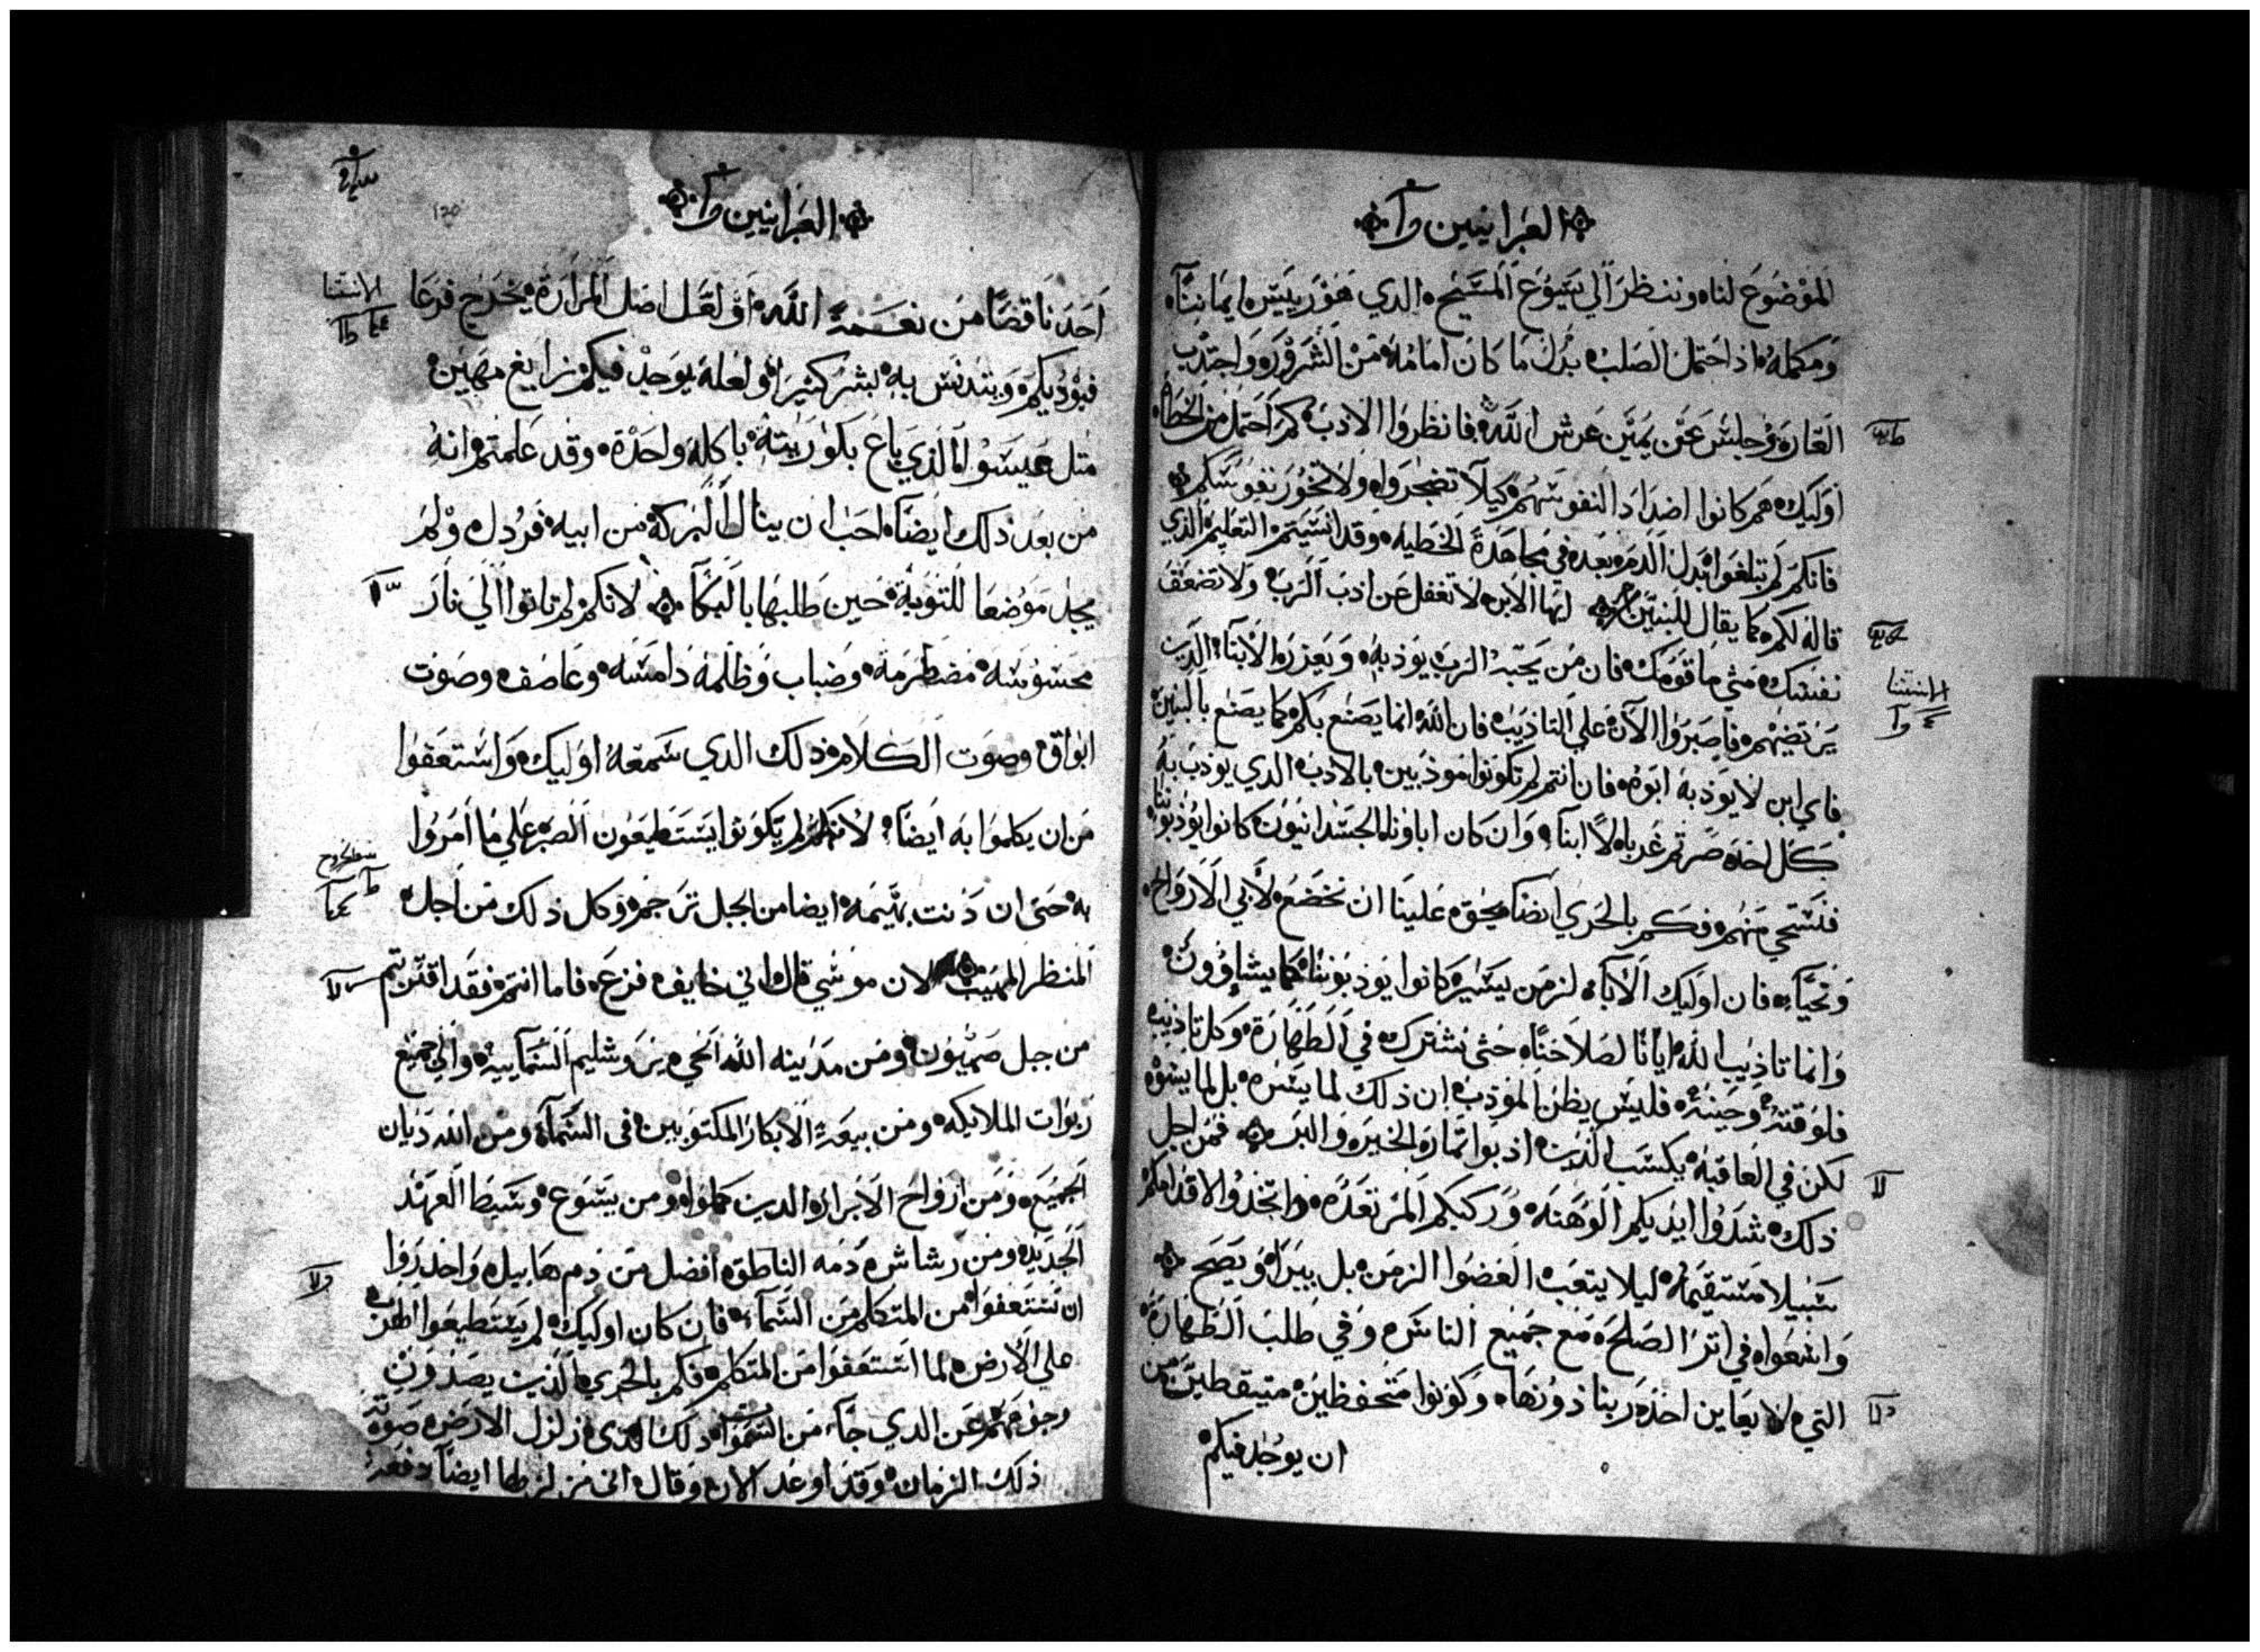 العبرانيين
الموضوع لنا، وننظر الي يسوع المسيح، الدي هو رييس ايماننا،
ومكمله، اذ احتمل الصلب، بدل ما كان امامه من السرور، واجتدب
العار، وجلس عن يمين عرش الله، فانظروا الادب كم احتمل من الخطاه،
اوليك، هم كانوا اضداد النفوسهم، كيلا تضجروا، ولا تخور نفوسكم
فانكم لم تبلغوا بدل الدم، بعد في مجاهدة الخطيه، وقد انسيتم التعليم الدي
قاله لكم، كما يقال للبنين ايها الابن لا تغفل عن ادب الرب، ولا تضعف
نفسك، متي ما قومك، فان من يحبه الرب، يودبه، ويعزر الابنآ، الدين
يرتضيهم، فاصبروا الآن علي التاديب، فان الله انما يصنع بكم، كما يصنع بالبنين
فاي ابن لا يودبه ابوه، فان انتم لم تكونوا مودبين، بالادب، الدي يودب به
كل احد، صرتم غربا، لا ابنآ، وان كان اباونا الجسدانيون كانوا يودبونا
فنستحي منهم، فكم بالحري ايضا يحق علينا ان نخضع لابي الارواح،
ونحيا، فان اوليك الابآ، لزمن يسير، كانوا يودبوننا، كما يشاوون،
وانما تاديب الله ايانا لصلاحنا، حتي نشترك في الطهارة، وكل تاديب
فلوقته، وحينه، فليس يظن المودب ان ذلك لما يسر، بل لما يسوه
لكن في العاقبه، يكسب الدين ادبوا ثمار، الخير، والبر، فمن اجل
ذلك، شدوا ايديكم الوهنه، وركبكم المرتعده، واتخدوا لاقدامكم
سبيلا مستقيمه، ليلا يتعب العضوا الزمن، بل يبرا، ويصح
واسعوا، في اثر الصلح، مع جميع الناس، وفي طلب الطهارة
التي، لا يعاين احد، ربنا دونها، وكونوا متحفظين، متيقطين، من
ان يوجد فيكم
الاستثنا
العبرانيين
120
احد ناقصا من نعمة الله، او لعل اصل المراره، يخرج فرعا
فيوديكم، ويتدنس به، بشر كثير، او لعله يوجد فيكم، زايغ مهين،
مثل عيسوا، الذي باع بكوريته، باكله واحدة، وقد علمتم، انه
من بعد ذلك ايضا، احب ان ينال البركة، من ابيه، فردل، ولم
يجد موضعا للتوبة، حين طلبها بالبكا لانكم لم تاتوا الي نار
محسوسه، مضطرمة، وضباب وظلمة دامسه، وعاصف، وصوت
ابواق، وصوت الكلام، ذلك الدي سمعه اوليك، واستعفوا
من ان يكلموا به ايضا، لانهم لم يكونوا يستطيعون الصبر علي ما امروا
به، حتي ان دنت بهيمه، ايضا من الجبل ترجم، وكل ذلك من اجل،
المنظر المهيب لان موسي قال، اني خايف، فزع، فاما انتم، فقد اقتربتم
من جبل صهيون، ومن مدينه الله الحي، يروشليم السمآييه، والي جميع
ربوات الملايكه، ومن بيعة الابكار المكتوبين، في السمآ، ومن الله ديان
الجميع، ومن ارواح الابرار، الدين كملوا، ومن يسوع، وسيط العهد
الجديد، ومن رشاش، دمه الناطق، افضل من دم، هابيل، واحذروا
ان تستعفوا، من المتكلم من السمآ، فان كان اوليك، لم يستطيعوا الهرب
علي الارض، لما استعفوا من المتكلم، فكم بالحري، الذين يصدون
وجوههم عن الدي جآ، من السموات، ذلك الذي زلزل الارض، صوته
ذلك الزمان، وقد اوعد الان، وقال، اني مزلزلها ايضا دفعة
الاستثنا